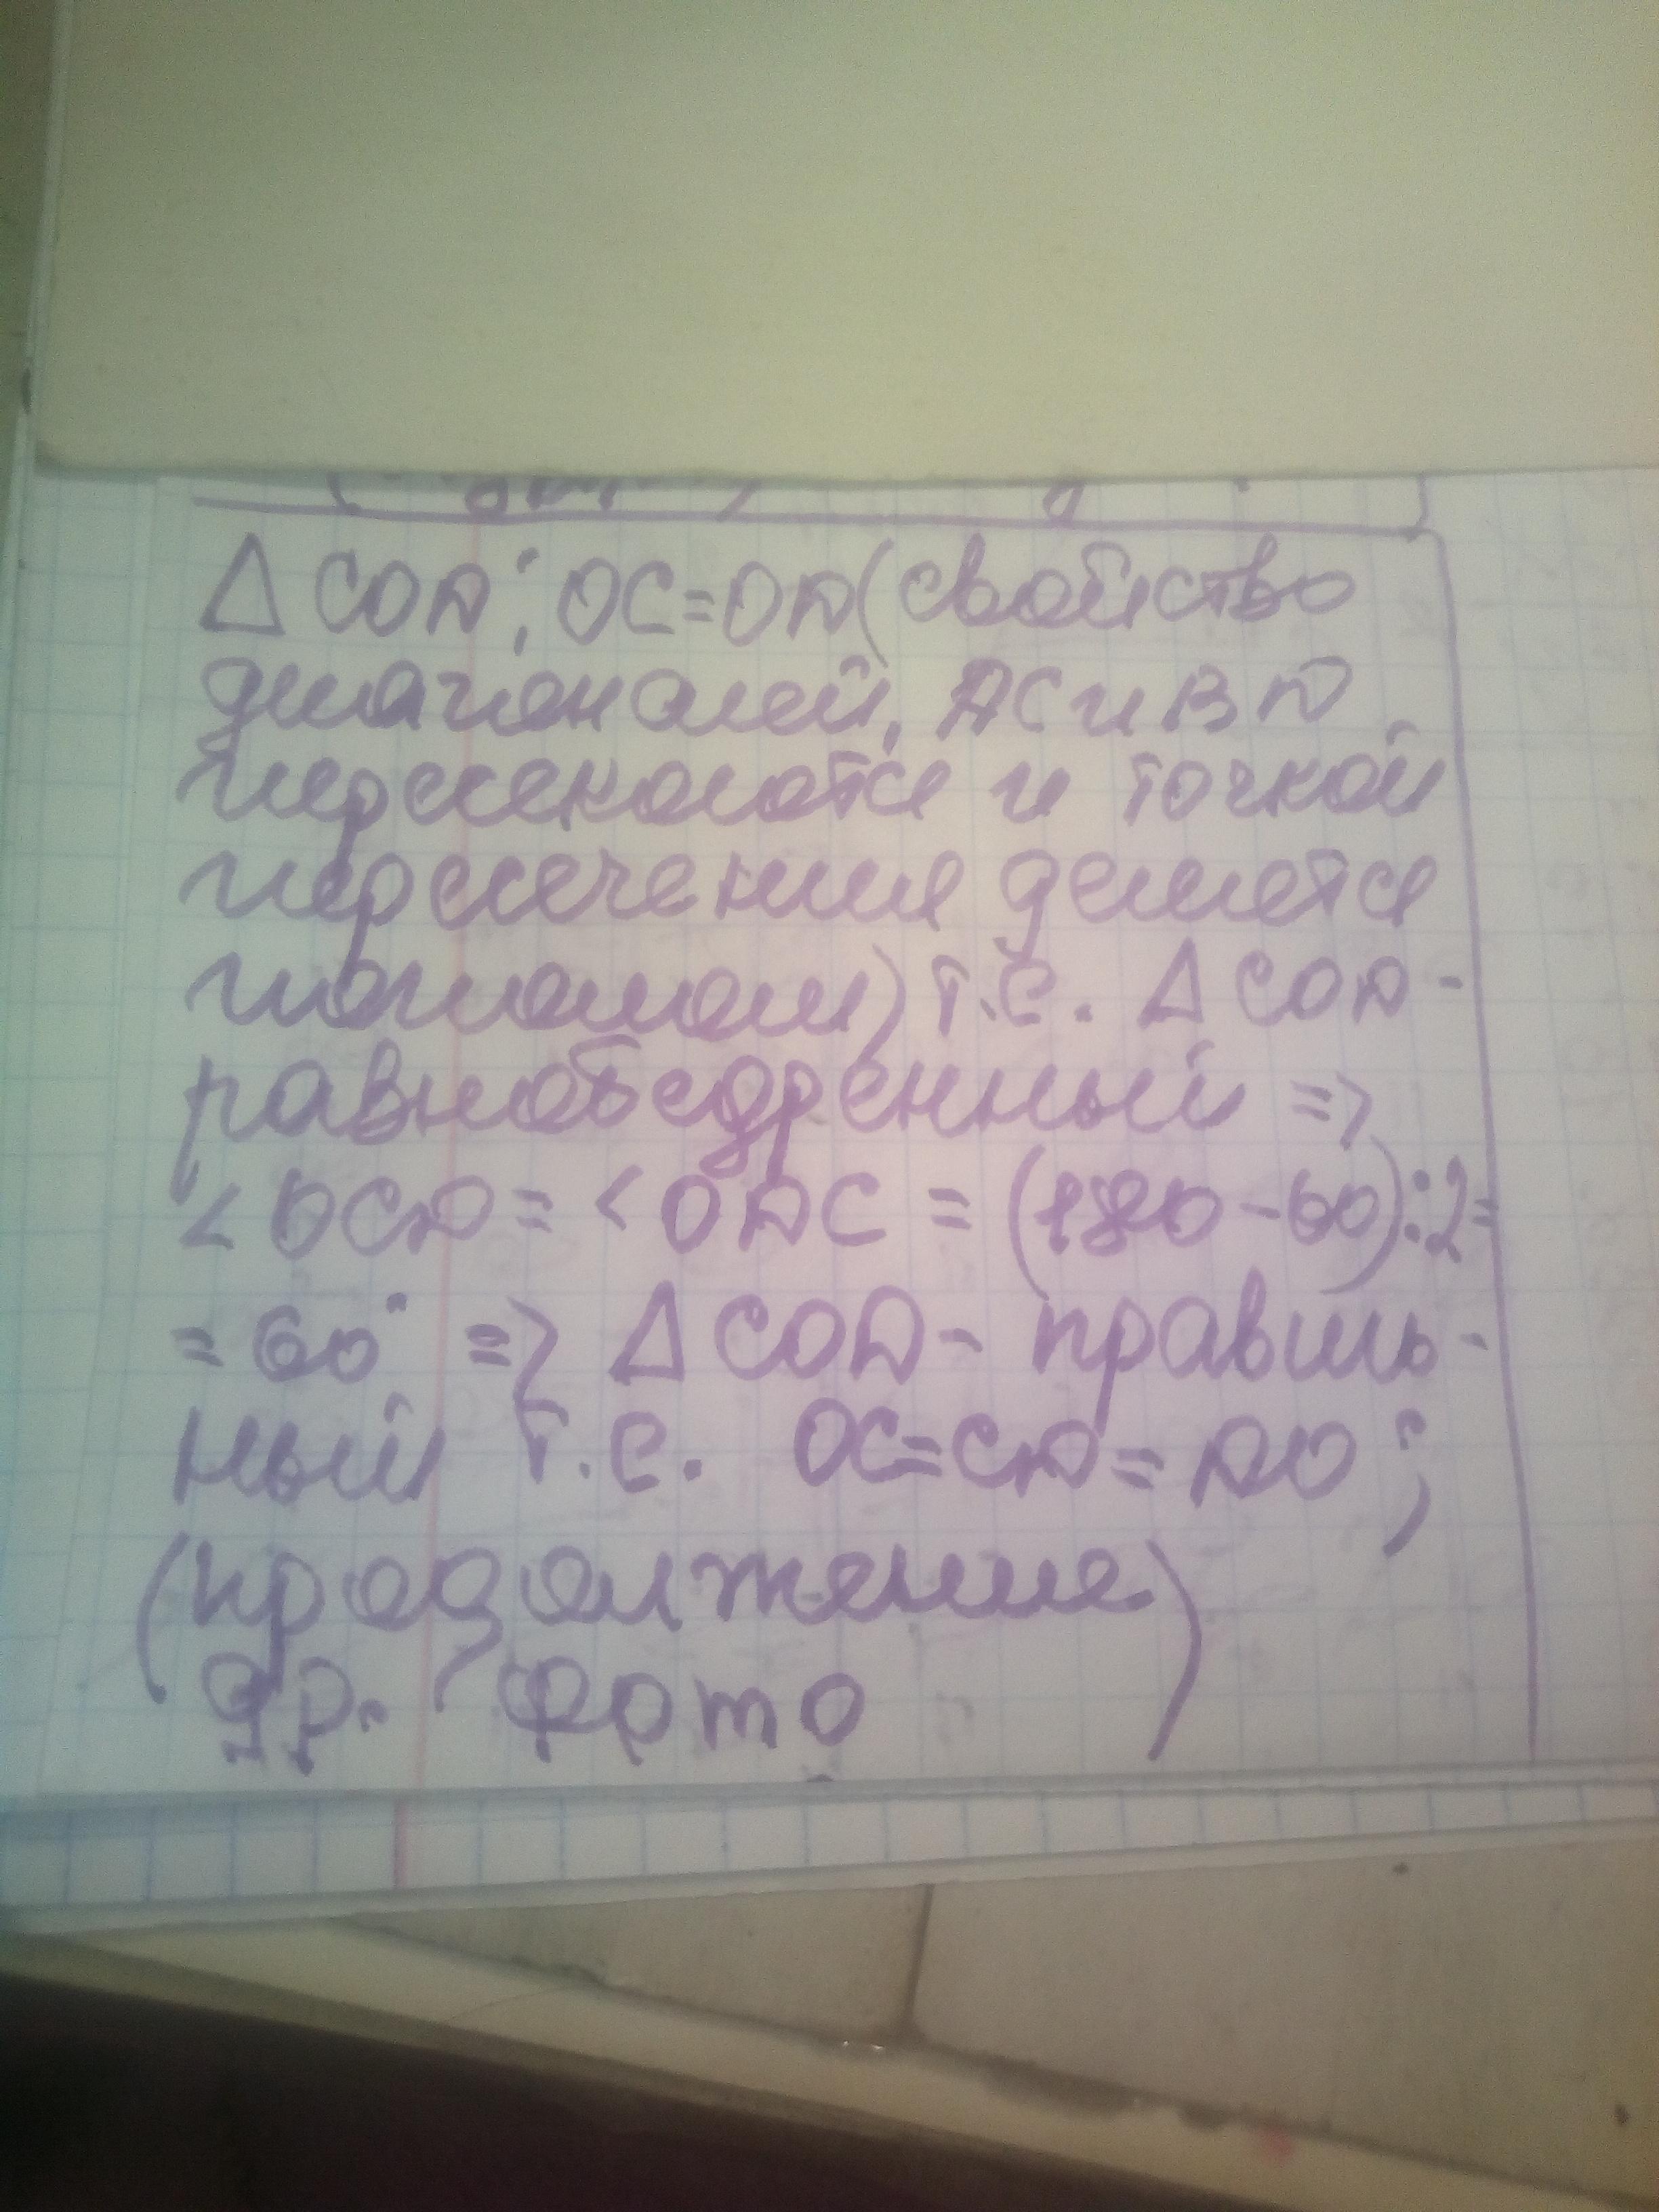 Δ COD; OC=OD (свойство
диагоналей, AC и BD
пересекаются и точкой
пересечения делятся
пополам) т.е. Δ COD-
равнобедренный =>
<OCD = <ODC = (180-60):2=
= 60° => Δ COD- правиль-
ный т.е. OC=CD=DO;
(продолжение)
др. фото